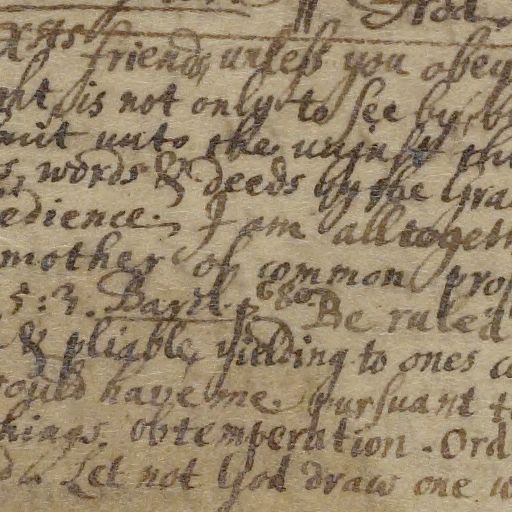 Xsts friends, unless you obey
is not only to see by, b
mit unto the unjust th
words & deeds by the Gra
edience. I am altogeth
mother of common pros
5:3. Baxt. p. 680 Be ruled
& pliable, yielding to ones
would have me. pursuant t
hings. obtemperation. Ord
Let not God draw one w